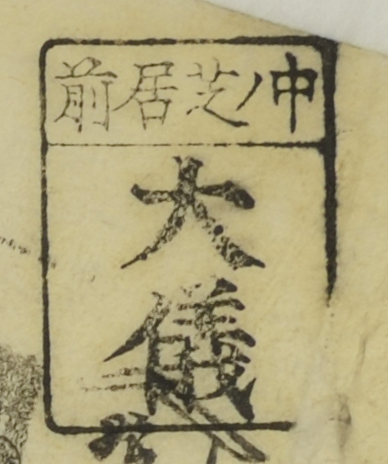 中ノ芝居前
大儀